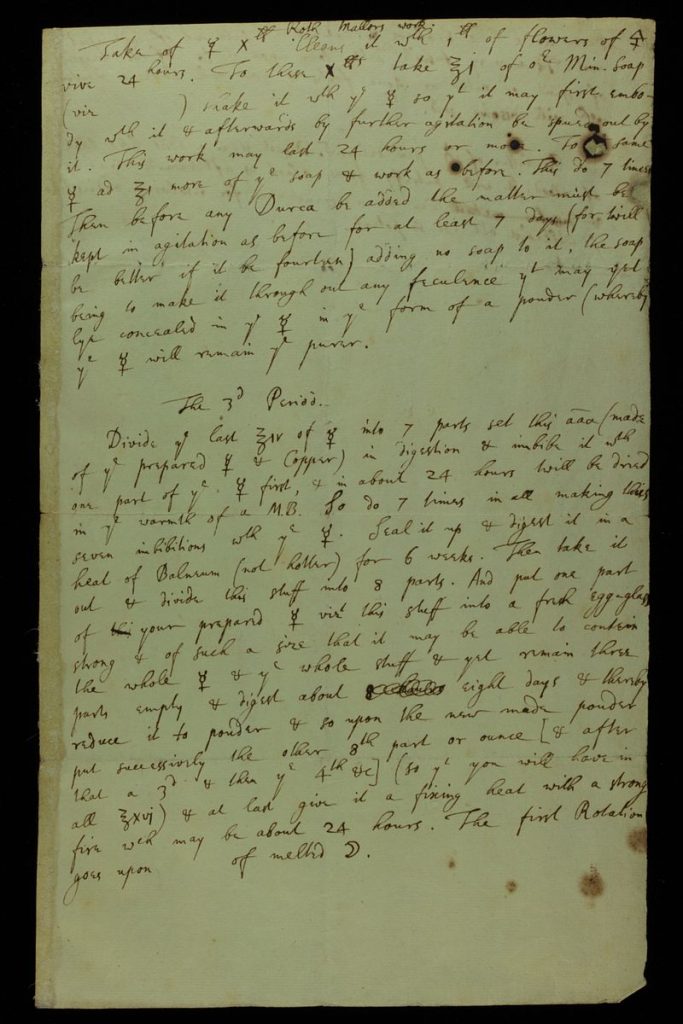 Roth Mallors work.
Take of ☿ X ℔ Cleans it wth 1 ℔ of flowers of 🜍
vive 24 hours. To these X ℔s take ℥1 of oe Min. soap
(viz ) shake it wth ye ☿ so yt it may first embo-
dy wth it & afterwards by further agitation be spued out by
it. This work may last 24 hours or more. To same
☿ ad ℥1 more of ye soap & work as before. This do 7 times
Then before any Durca be added the matter must be
kept in agitation as before for at least 7 days (for twill
be better if it be fourteen) adding no soap to it, the soap
being to make it through out any feculence yt may yet
lye concealed in ye ☿ in ye form of a pouder (whereby
ye ☿ will remain ye purer.
The 3d Period.
Divide ye last ℥iv of ☿ into 7 parts set this aaa (made
of ye prepared ☿ & Copper) in digestion & imbibe it wth
one part of ye ☿ first, & in about 24 hours twill be dried
in ye warmth of a M.B. So do 7 times in all making
seven imbibitions wth ye ☿. Seal it up & digest it in a
heat of Balneum (not hotter) for 6 weeks. Then take it
out & divide this stuff into 8 parts. And put one part
of your prepared ☿ vizt this stuff into a fresh egg-glass
strong & of such a size that it may be able to contein
the whole ☿ & ye whole stuff & yet remain three
parts empty & digest about eight days & thereby
reduce it to pouder & so upon the new made pouder
put successively the other 8th part or ounce [& after
that a 3d & then ye 4th &c] (so yt you will have in
all ℥xvj) & at last give it a fixing heat with a strong
fire wch may be about 24 hours. The first Rotation
goes upon of melted ☽.